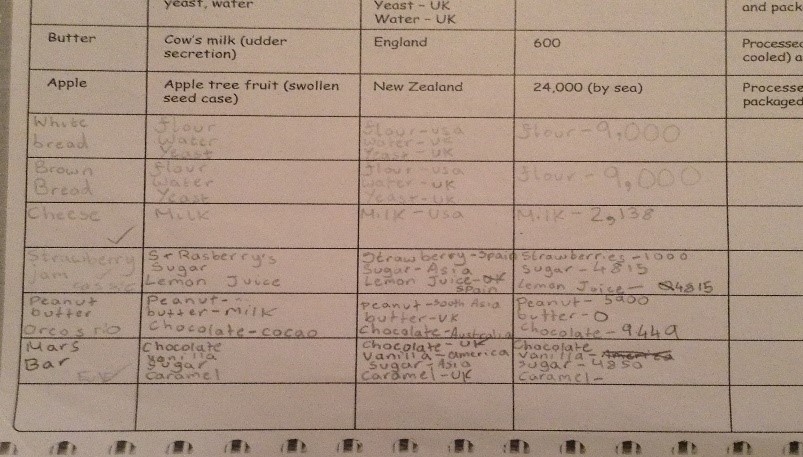 yeast, water
Yeast - UK
Water - UK
and pack
Butter
Cow's milk (udder
secretion)
England
600
Processed
cooled) a
Apple
Apple tree fruit (swollen
seed case)
New Zealand
24,000 (by sea)
Processe
packaged
White
bread
flour
Water
Yeast
flour-usa
water-UK
Yeast-UK
flour-9,000
Brown
Bread
flour
Water
Yeast
flour-usa
water-UK
Yeast-UK
flour-9,000
Cheese
Milk
Milk-Usa
Milk-2,138
Strawberry
jam
Rasberry's
Sugar
Lemon Juuce
Strawberry-Spain
Sugar-Asia
Lemon Juice-
Spain
Strawberries-1000
Sugar-4815
Lemon Joice-4815
Peanut
butter
Peanut-
butter-milk
Chocolate-cacao
Peanut-South Asia
butter-UK
Chocolate-Australia
Peanut-5900
butter-0
Chocolate-9449
Mars
Bar
Chocolate
Vanilla
Sugar
Caramel
Chocolate-UK
Vanilla-america
Sugar-Asia
Caramel-UK
Chocolate
Vanilla-
Sugar-4850
Caramel-